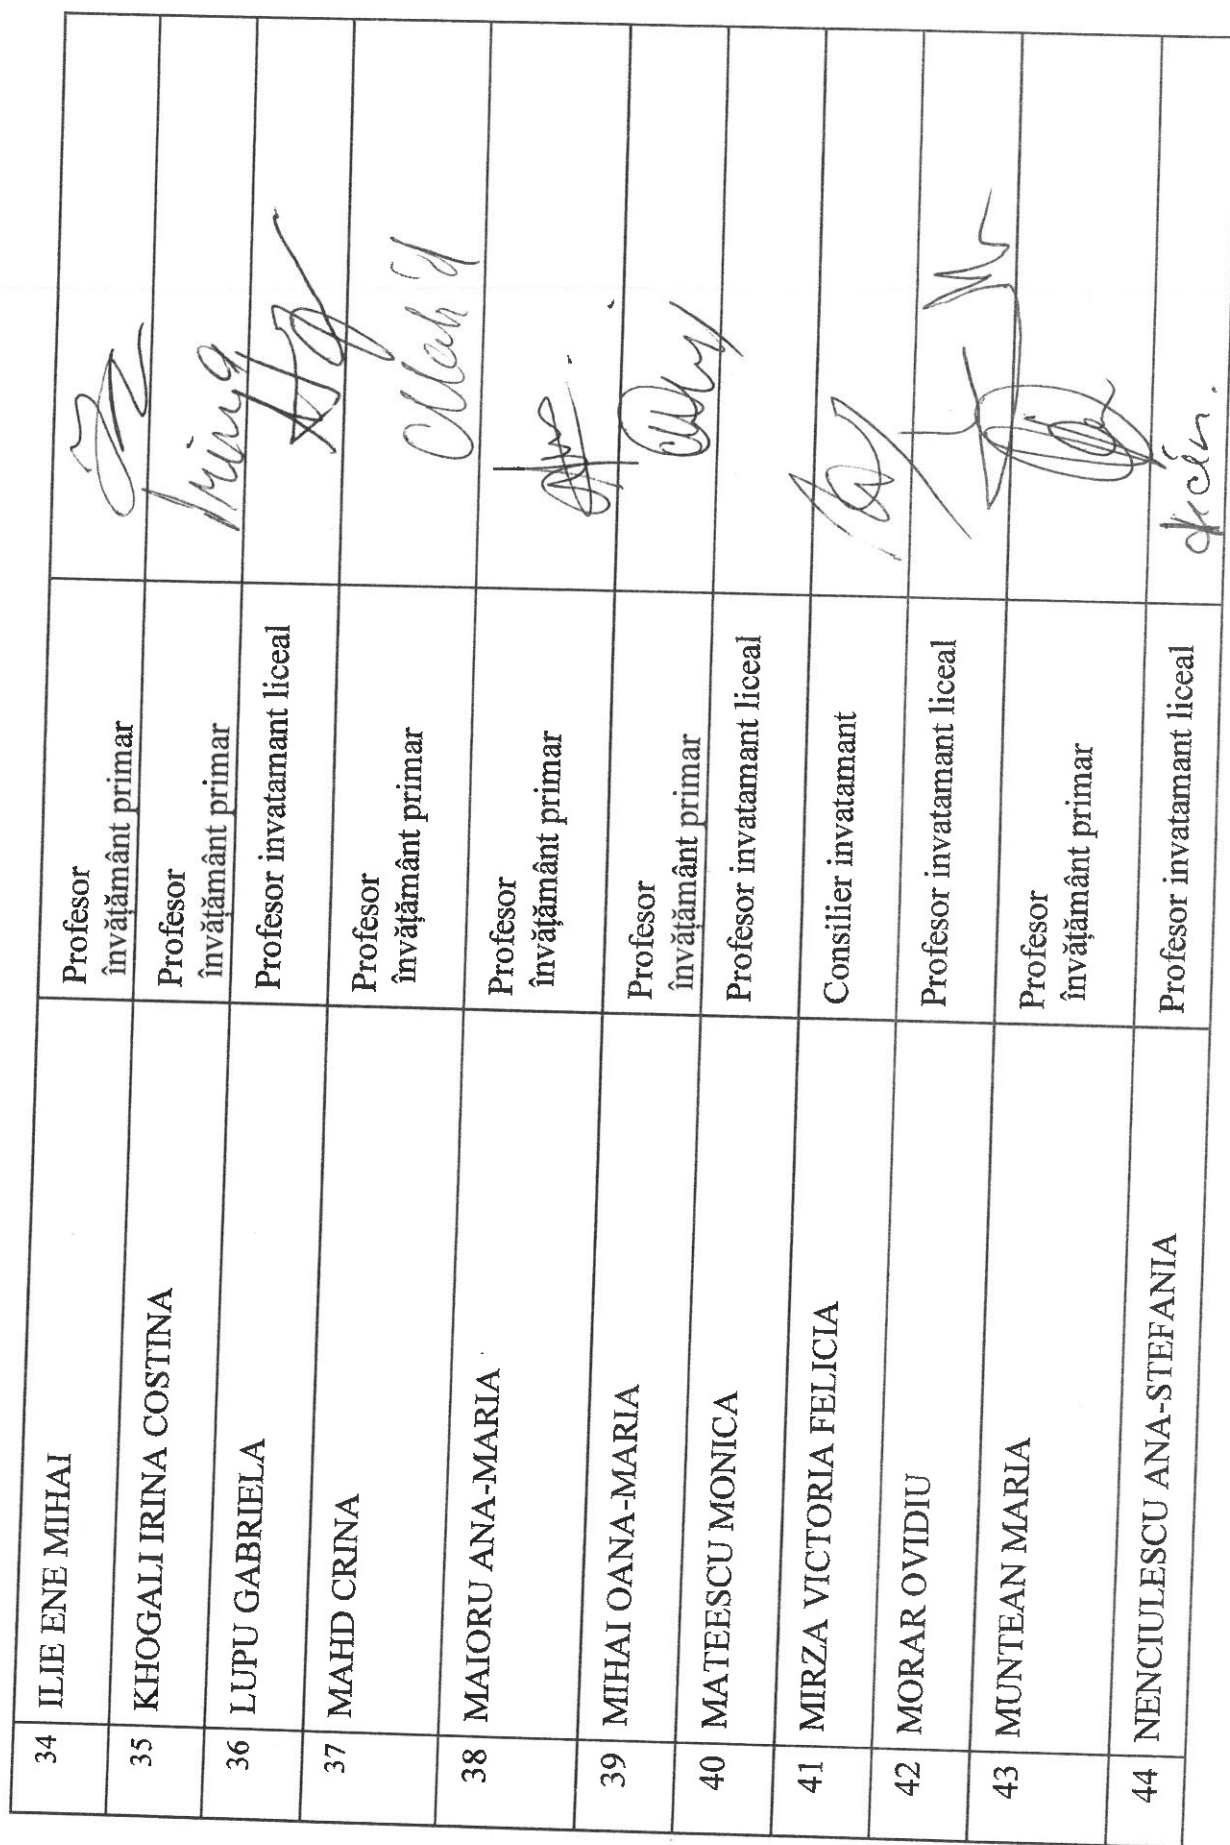 34 ILIE ENE MIHAI Profesor
învățământ primar
35 KHOGALI IRINA COSTINA Profesor
învățământ primar
Irina
36 LUPU GABRIELA Profesor invatamant liceal
37 MAHD CRINA Profesor
învățământ primar
Mahd
38 MAIORU ANA-MARIA Profesor
învățământ primar
39 MIHAI OANA-MARIA Profesor
învățământ primar
40 MATEESCU MONICA Profesor invatamant liceal
41 MIRZA VICTORIA FELICIA Consilier invatamant
42 MORAR OVIDIU Profesor invatamant liceal
43 MUNTEAN MARIA Profesor
învățământ primar
44 NENCIULESCU ANA-STEFANIA Profesor invatamant liceal